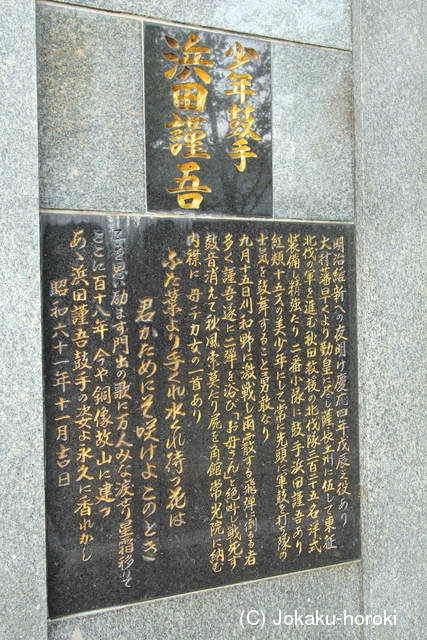 少年鼓手
浜田謹吾
明治維新への夜明け慶応四年戊辰之役あり
大村藩早くより勤皇に尽し薩長土州に伍して東征
北伐の軍を進む秋田救援の北伐隊三百二十五名洋式
装備し精強たり二番小隊に鼓手浜田謹吾あり
紅顔十五才の美少年にして常に先頭に軍鼓を打ち隊の
士気を鼓舞すること勇敢なり
九月十五日刈和野に激戦し雨霰する飛弾に倒るる者
多く謹吾遂に二弾を浴びお母さんと絶叫し戦死す
鼓音消えて秋風索莫たり屍を角館常光院に納む
内襟に母チカ女の一首あり
ふた葉より手くれ水くれ待つ花は
君かためにそ咲けよこのとき
こを思い励ます門出の歌に万人みな涙せり星霜移りて
ここに百十八年今や銅像故山に建つ
あゝ浜田謹吾鼓手の姿よ永久に香れかし
昭和六十一年十一月吉日
(C) Jokaku-horoki